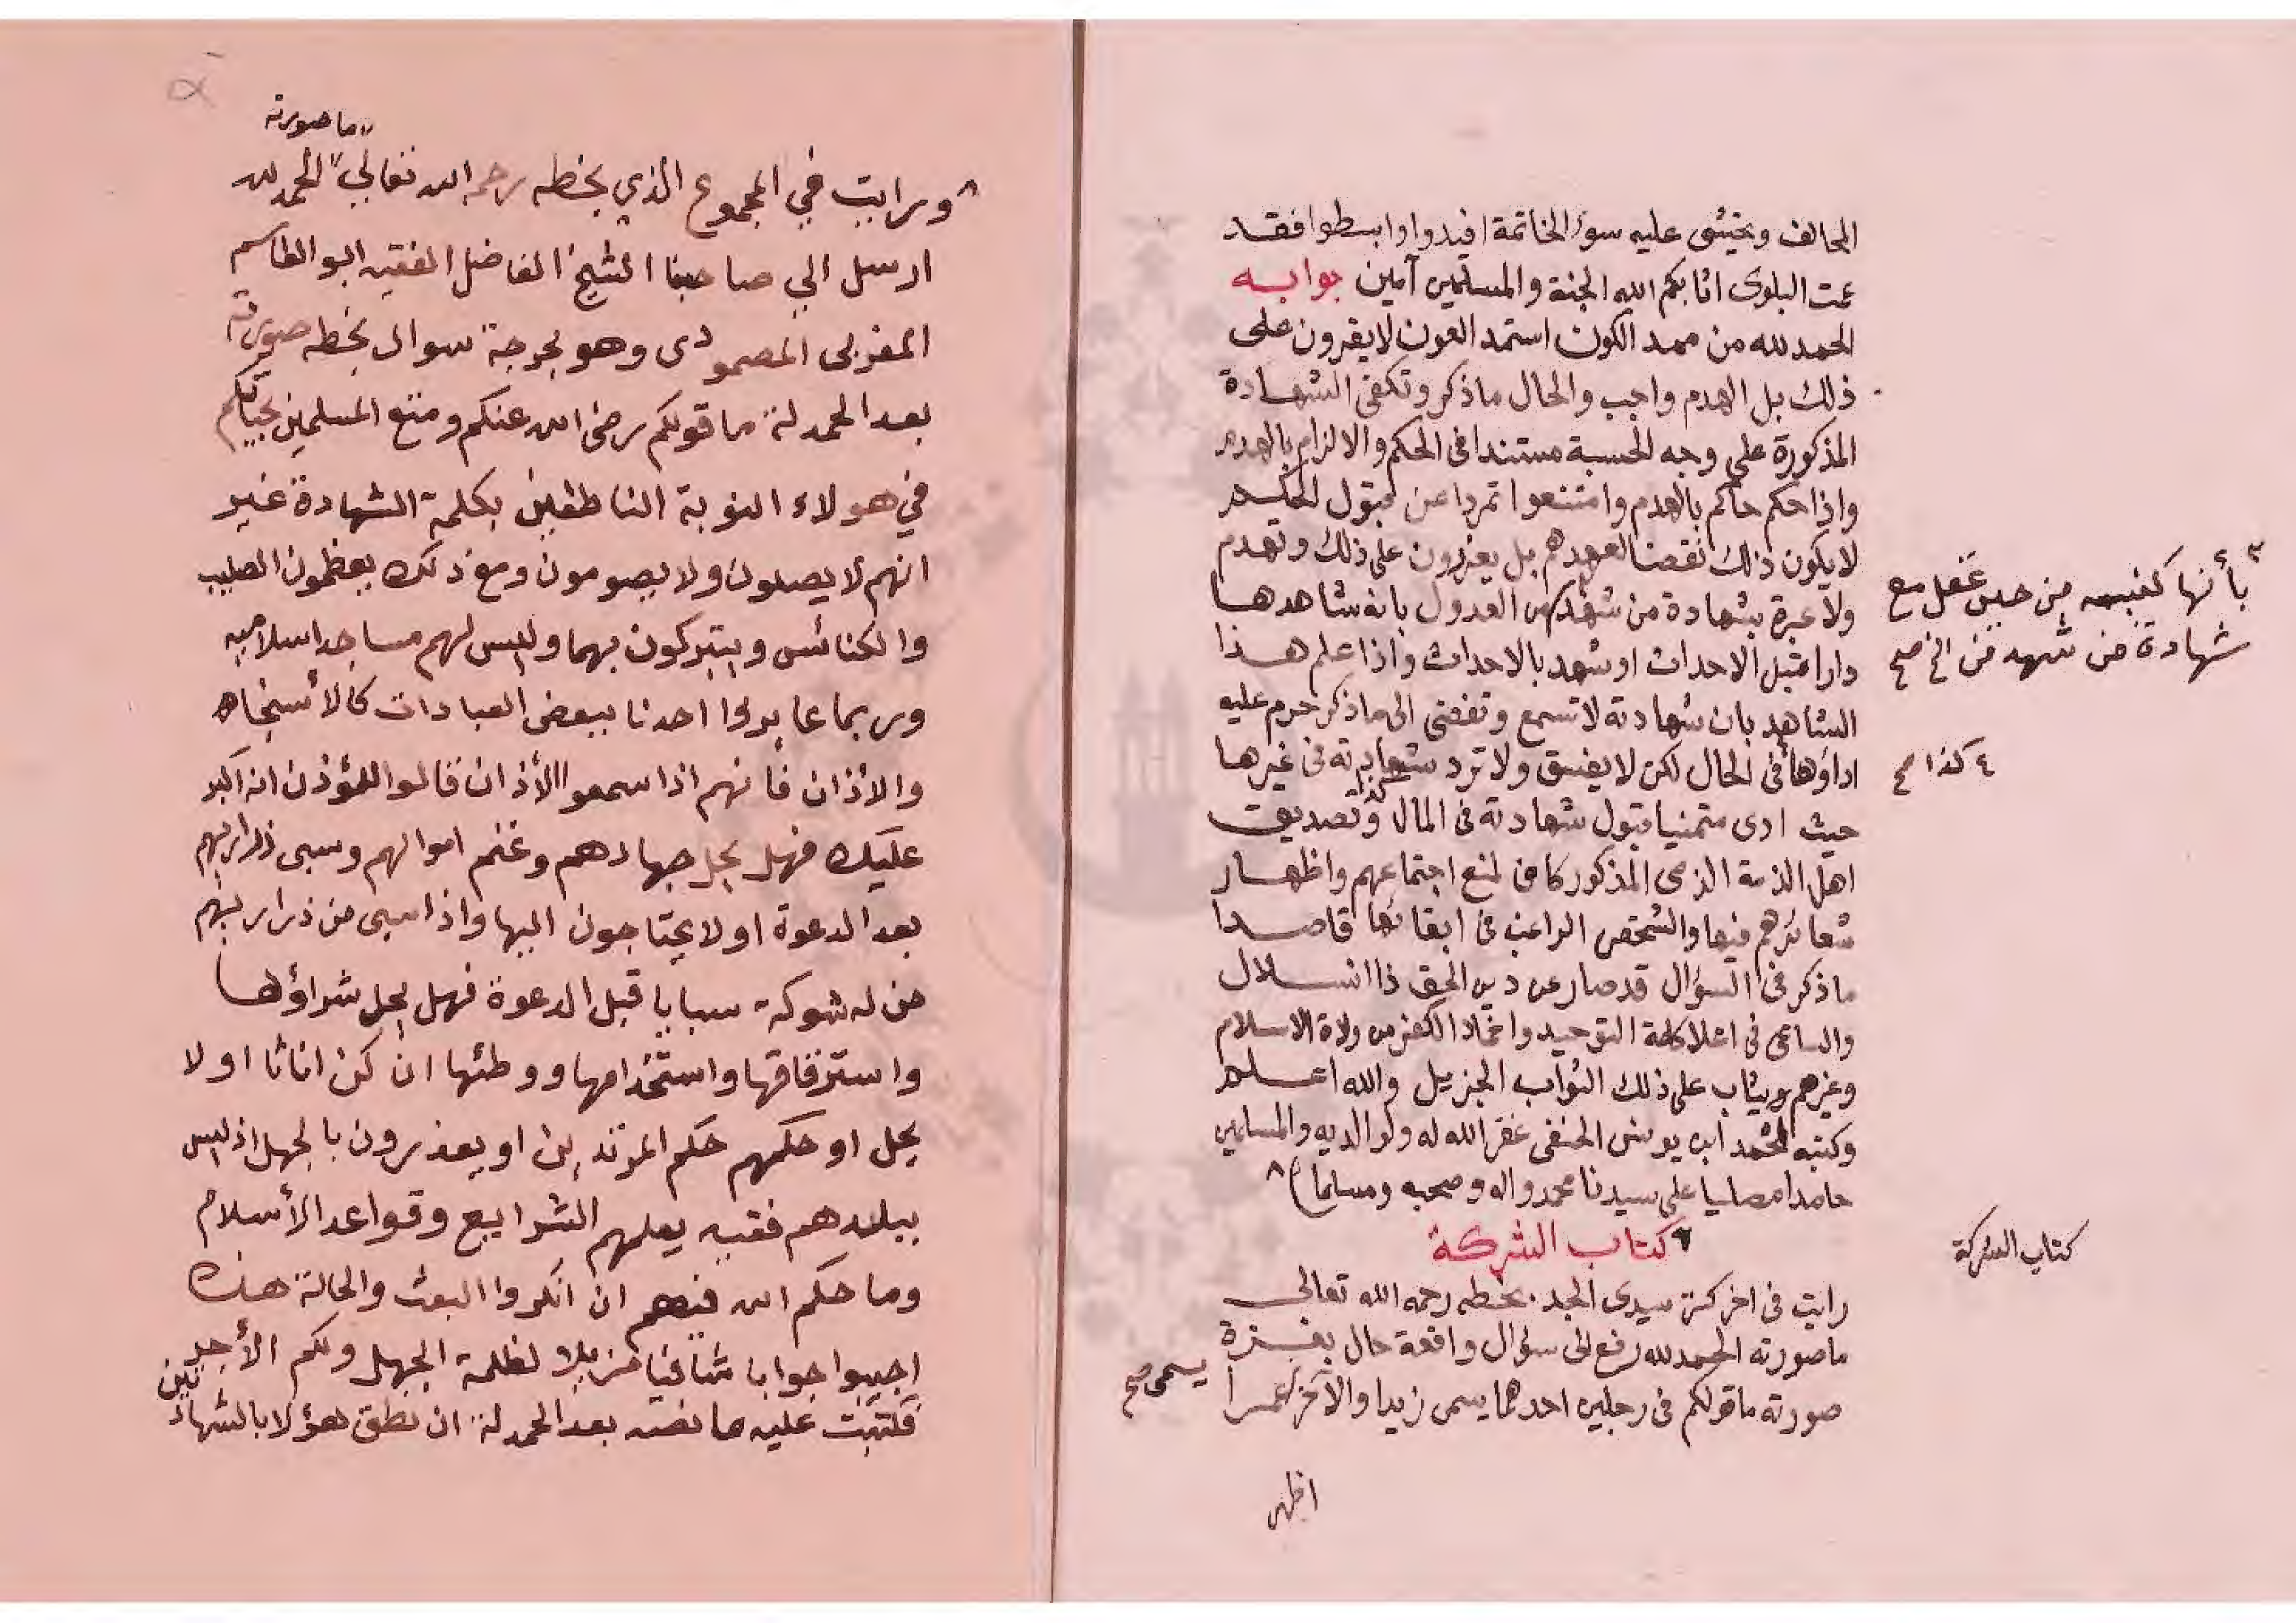 المحالف ويخشى عليه سوء الخاتمة افيدوا وابسطوا فقد
عمت البلوى اثابكم الله الجنة والمسلمين آمين جوابه
الحمد لله من ممد الكون استمد العون لا يقرون على
ذلك بل الهدم واجب والحال ما ذكر وتكفى الشهادة
المذكورة على وجه الحسبة مستندا فى الحكم والالزام بالهدم
واذا حكم حاكم بالهدم وامتنعوا تمردا عن قبول الحكم
لا يكون ذلك نقضا لعهدهم بل يعزرون على ذلك وتهدم
ولا عبرة بشهادة من شهد من العدول بانه شاهدها
بأنها كنيسه من حين عقل مع
شهادة من شهد من الخ صح
دارا قبل الاحداث او شهد بالاحداث واذا علم هذا
الشاهد بان شهادته لا تسمع وتفضى الى ما ذكر حرم عليه
اداؤها فى الحال لكن لا يفسق ولا ترد شهادته فى غيرها
٤ كذا صح
حيث ادى متمنيا قبول شهادته فى المال وتصديق
كذا
اهل الذمة الذى المذكور كاف لمنع اجتماعهم واظهار
شعائرهم فيها والشخص الراغب فى ابقائها قاصدا
ما ذكر فى السؤال قد صار عن دين الحق ذا انسلال
والساعى فى اعلا كلمة التوحيد واخماد الكفر من ولاة الاسلام
وغيرهم ويثاب على ذلك الثواب الجزيل والله اعلم
وكتبه محمد ابن يونس الحنفى غفر الله له ولوالديه والمسلمين
حامدا مصليا على سيدنا محمد واله وصحبه ومسلما)
كتاب الشركة
كتاب الشركة
رايت فى اخر سيدى الجد بخطه رحمه الله تعالى
ما صورته الحمد لله رفع الى سؤال واقعة حال بغزة
صورته ما قولكم فى رجلين احدهما يسمى زيدا والآخر عمرا
يسمى صح
اظهر
ما صورته
ورايت في المجموع الذي بخطه رحمه الله تعالي الحمد لله
ارسل الي صاحبنا الشيخ الفاضل الفقيه ابو القاسم
المغربى المصمودى وهو بجرجة سوال بخطه صورته
بعد الحمد لة ما قولكم رضى الله عنكم ومتع المسلمين بحياتكم
في هولاء النوبة الناطقين بكلمة الشهادة غير
انهم لا يصلون ولا يصومون ومع ذلك يعظمون الصليب
والكنائس ويتبركون بهما وليس لهم مساجد اسلاميه
وربما عايروا احدنا ببعض العبادات كالأستنجاء
والاذان فانهم اذا سمعوا الأذان قالوا للمؤذن انه اكبر
عليك فهل يحل جهادهم وغنم اموالهم وسبى ذراريهم
بعد الدعوة او لا يحتاجون اليها واذا سبى من ذراريهم
من له شوكة سبايا قبل الدعوة فهل يحل شراؤها
واسترقاقها واستخدامها ووطئها ان كن اناثا او لا
يحل او حكمهم حكم المرتدين او يعذرون بالجهل اذ ليس
ببلادهم فقيه يعلمهم الشرايع وقواعد الأسلام
وما حكم الله فيهم ان انكروا البعث والحالة هذه
اجيبوا جوابا شافيا مزيلا لظلمة الجهل ولكم الأجر
فكتبت عليه ما نصه بعد الحمد لة ان نطق هؤلا بالشهادتين